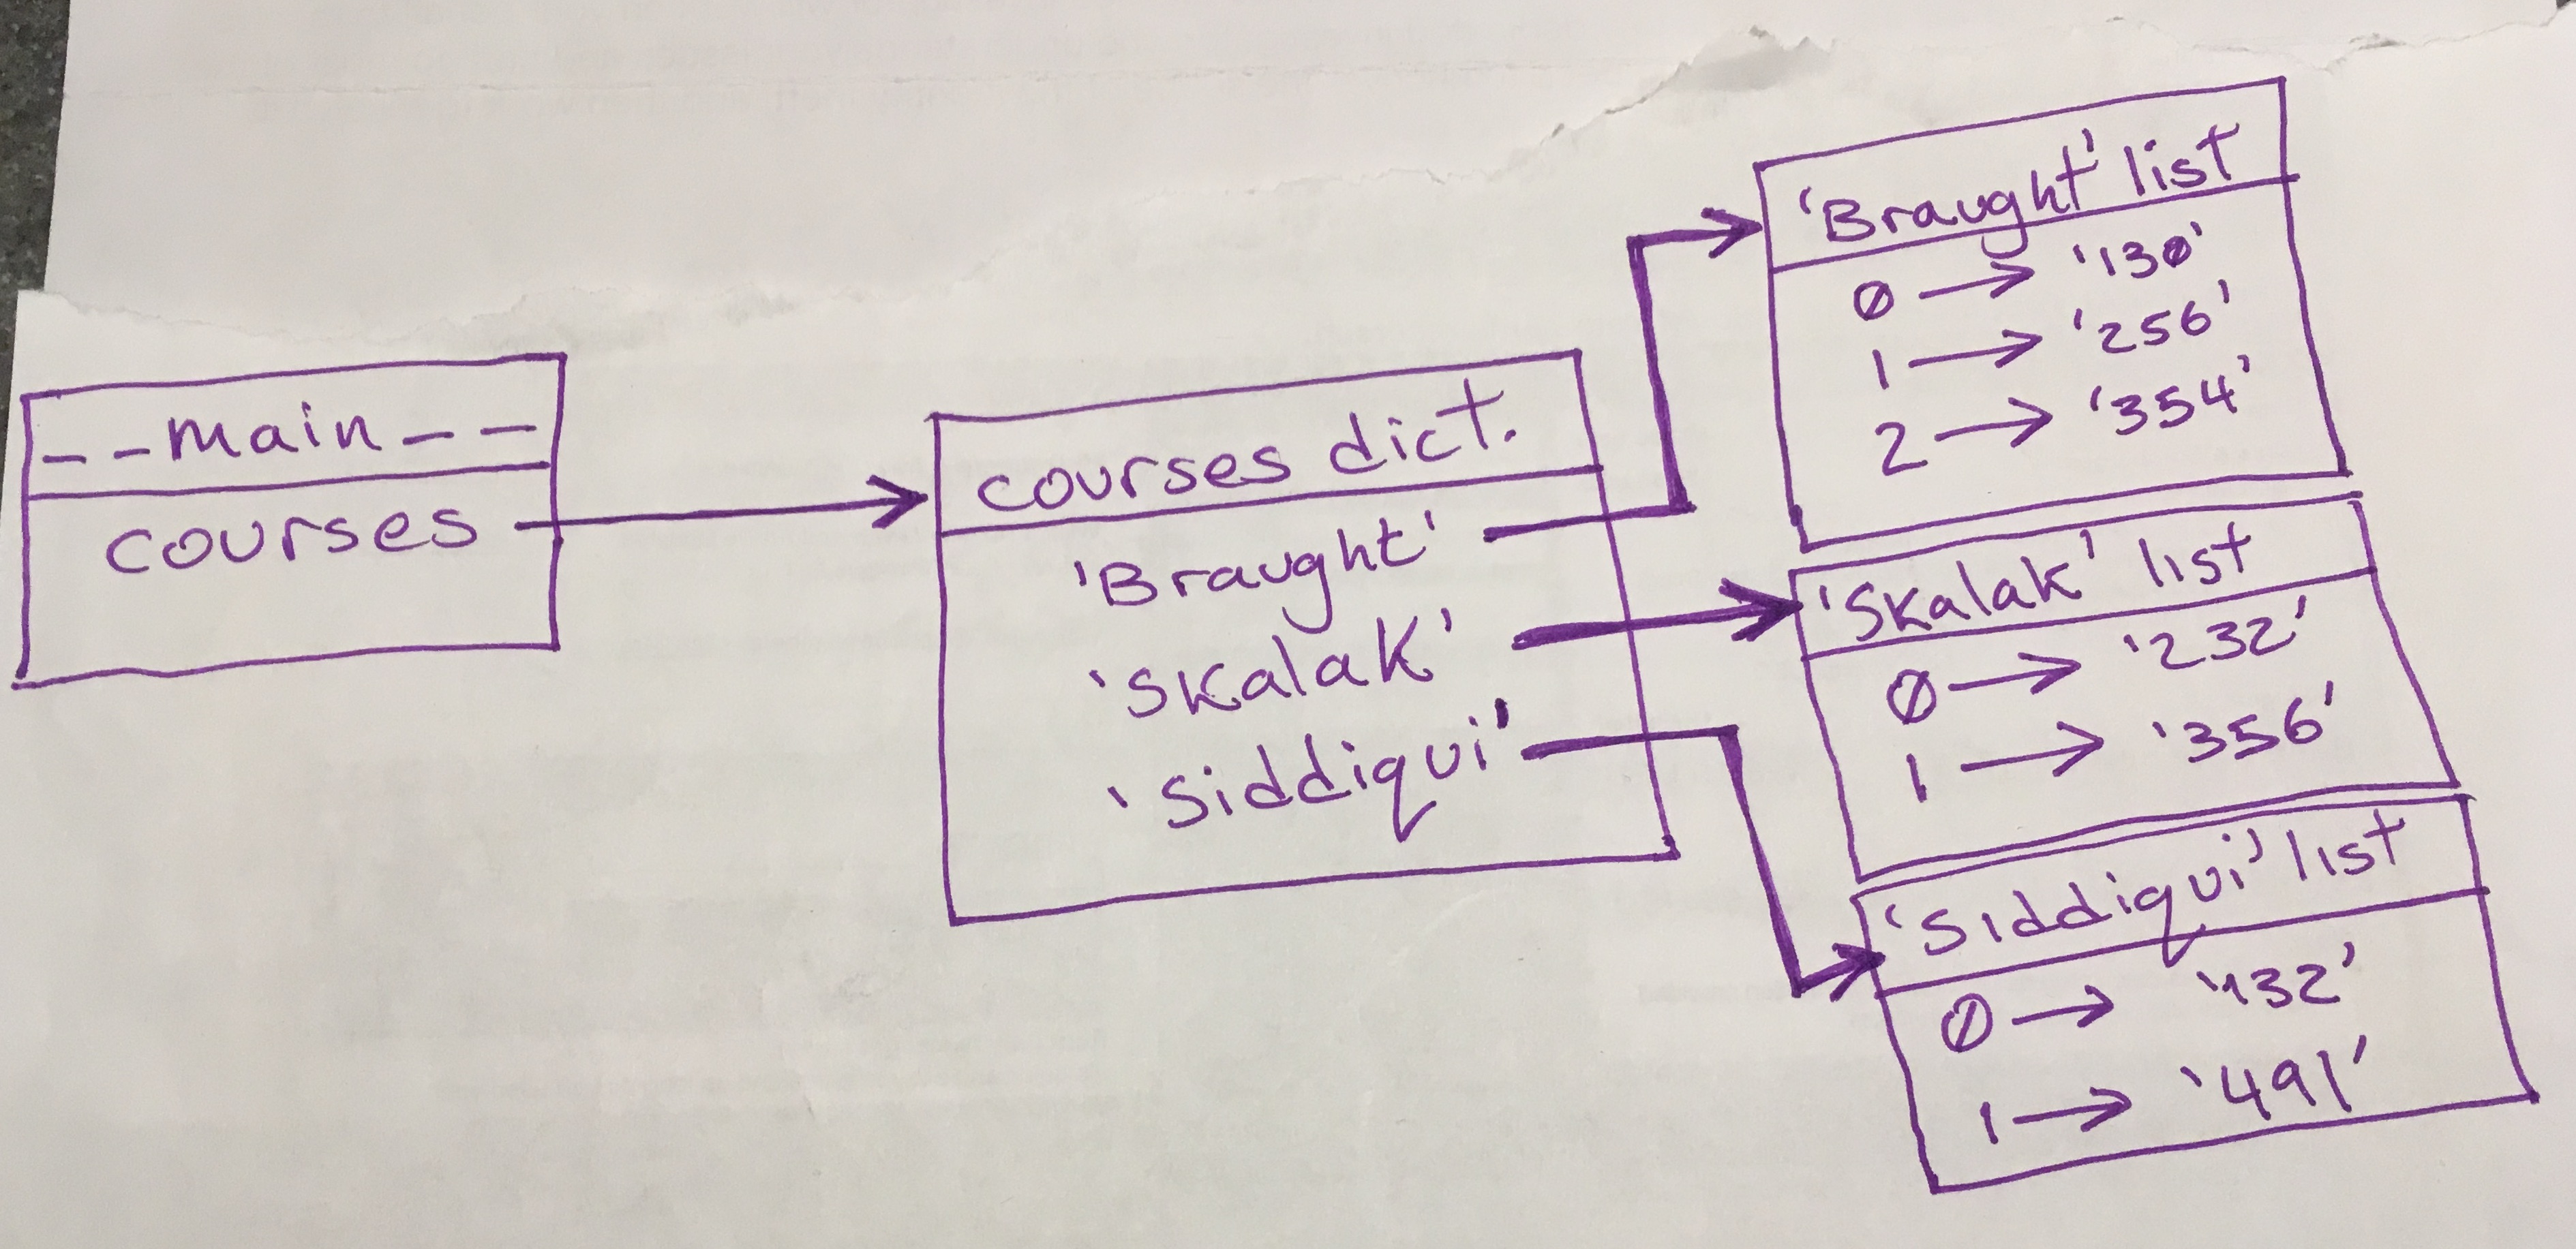 __main__
courses
courses dict.
'Braught'
'Skalak'
'Siddiqui'
'Braught' list
0 → '130'
1 → '256'
2 → '354'
'Skalak' list
0 → '232'
1 → '356'
'Siddiqui' list
0 → '132'
1 → '491'